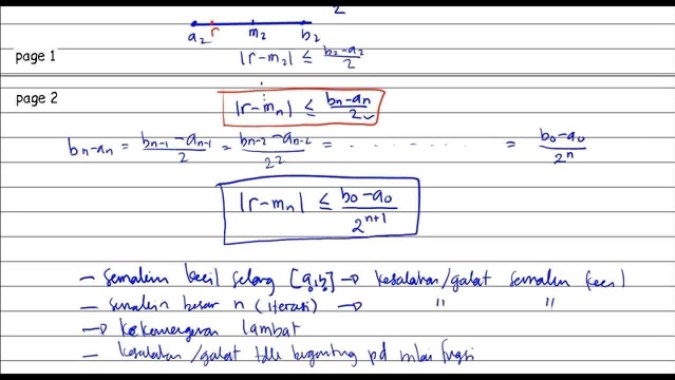 2
a₂ r m₂ b₂
page 1
|r-m₂| ≤ (b₂-a₂)/2
page 2
⋮
|r-mₙ| ≤ (bₙ-aₙ)/2
bₙ-aₙ = (bₙ₋₁-aₙ₋₁)/2 = (bₙ₋₂-aₙ₋₂)/2² = ......... = (b₀-a₀)/2ⁿ
|r-mₙ| ≤ (b₀-a₀)/2ⁿ⁺¹
- Semakin kecil selang [a,b] → kesalahan/galat semakin kecil
- semakin besar n (iterasi) → " "
→ kekonvergenan lambat
- kesalahan/galat tdk bergantung pd nilai fungsi